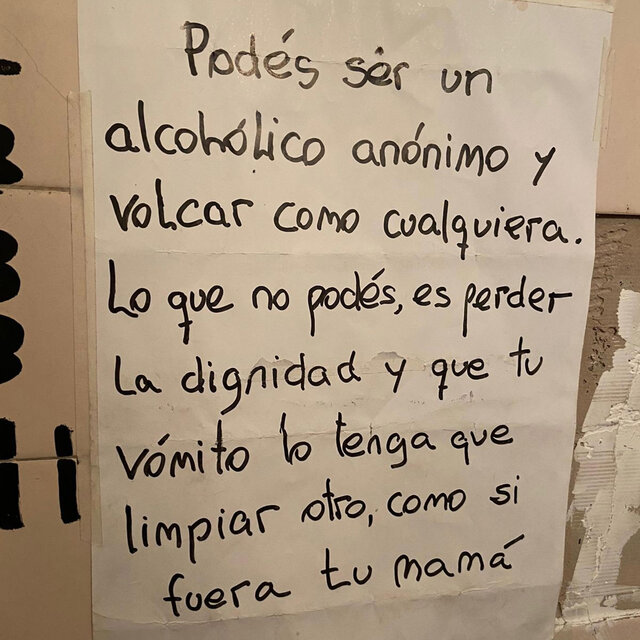 Podés ser un
alcohólico anónimo y
volcar como cualquiera.
Lo que no podés, es perder
la dignidad y que tu
vómito lo tenga que
limpiar otro, como si
fuera tu mamá